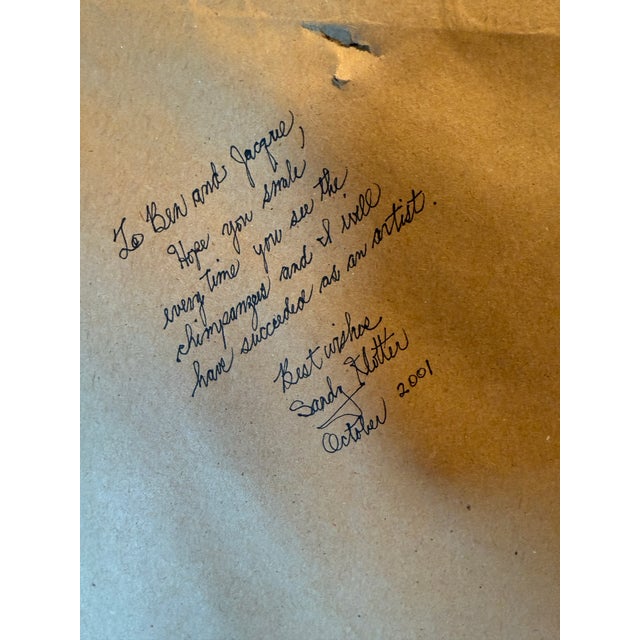 To Ben and Jacquie,
Hope you smile
every time you see the
chimpanzees and I will
have succeeded as an artist.
Best wishes
Sandy Klotter
October 2001